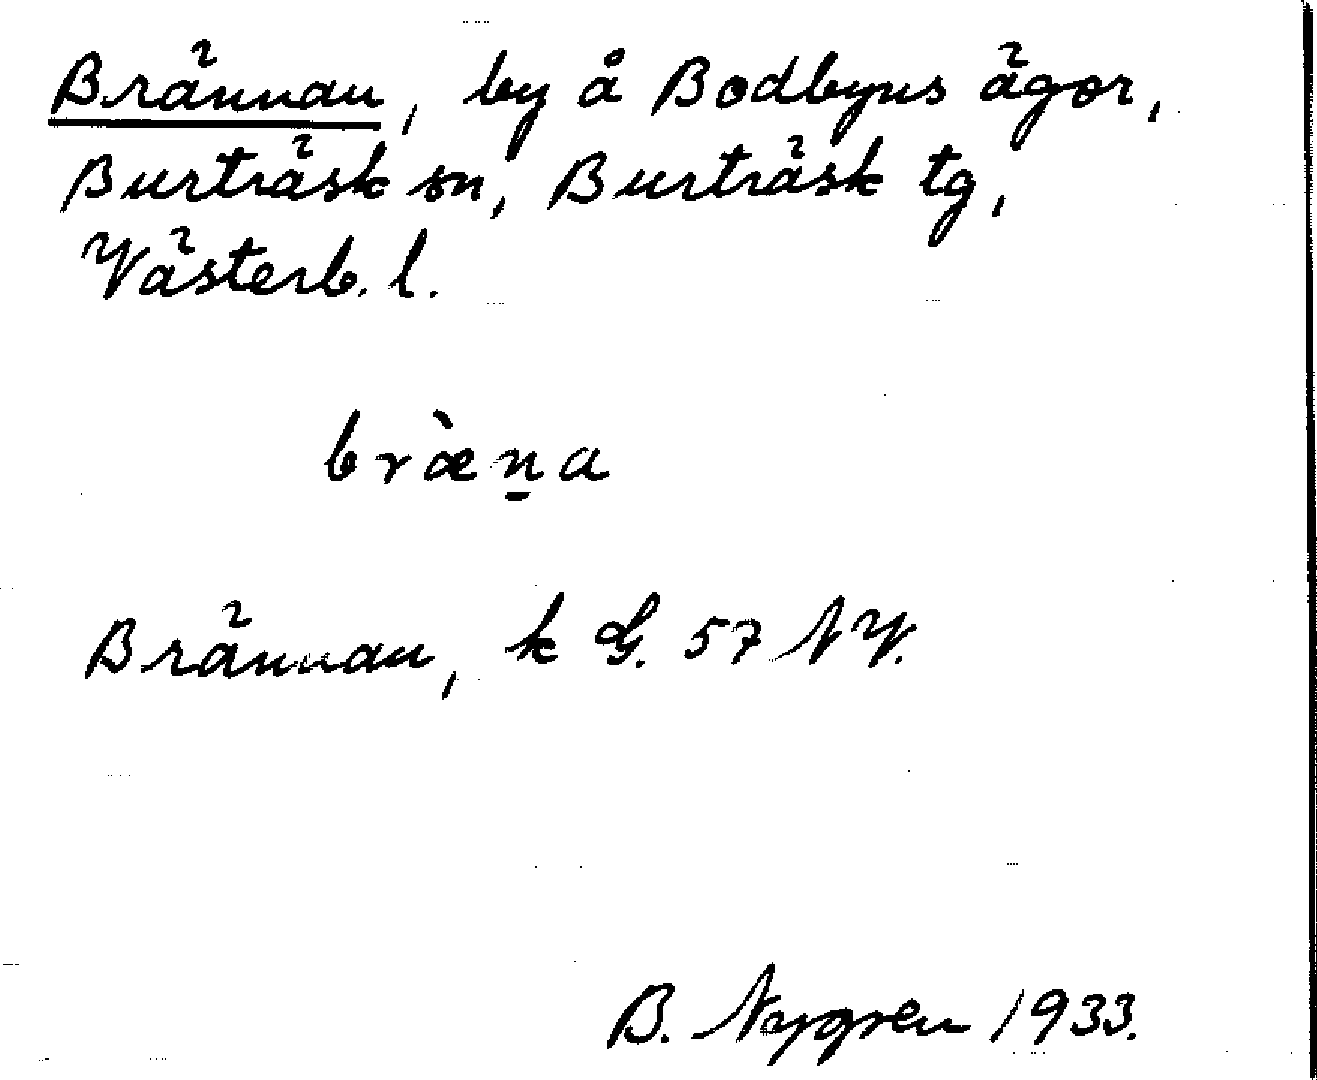 Brännan, by å Bodbyns ägor,
Burträsk sn, Burträsk tg,
Västerb. l.
bràen̲a
Brännan, k G. 57 NV.
B. Nygren 1933.